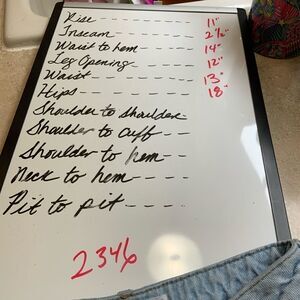 Rise - - - - - 11"
Inseam - - - - 2 1/2"
Waist to hem - - - 14"
Leg Opening - - - - 12"
Waist - - - - 13"
Hips - - - - 18"
Shoulder to shoulder -
Shoulder to cuff - - -
Shoulder to hem - - -
Neck to hem - - - -
Pit to pit - - - - -
2346